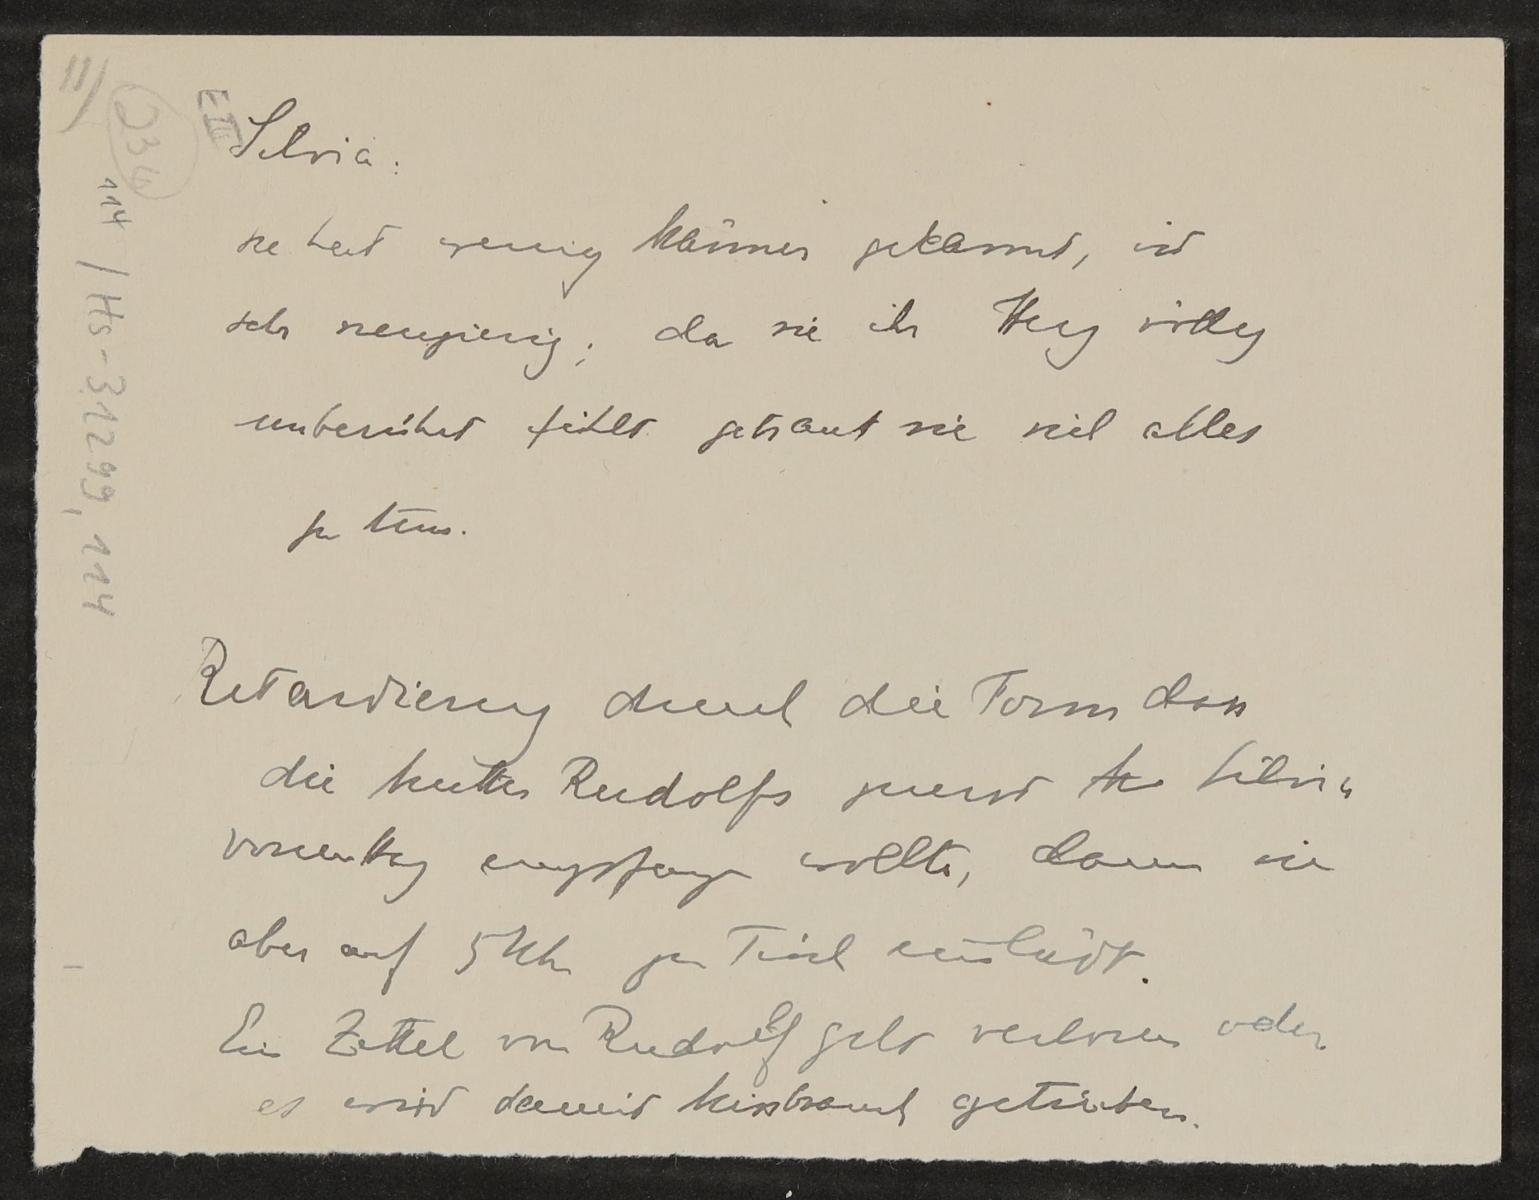 III/
D34
E III
114 / Hs-31299,114
Silvia:
sie hat wenig Männer gekannt, ist
sehr neugierig; da sie ihr Herz völlig
unberührt fühlt getraut sie sich alles
zu tun.
Retardierung durch die Form dass
die Mutter Rudolfs zuerst Silvia
vormittag empfangen wollte, dann sie
aber auf 5 Uhr zu Tisch einlädt.
Ein Zettel von Rudolf geht verloren oder
es wird damit Missbrauch getrieben.